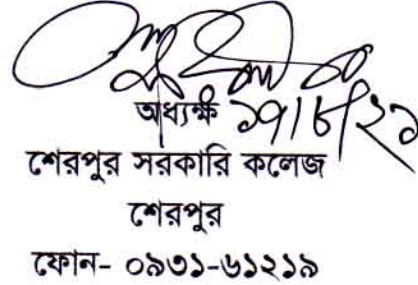 অধ্যক্ষ ১৭/৮/২১
শেরপুর সরকারি কলেজ
শেরপুর
ফোন- ০৯৩১-৬১২১৯